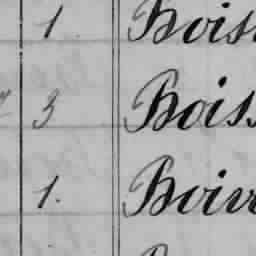 1 Bois
3 Boiss
1. Boiv